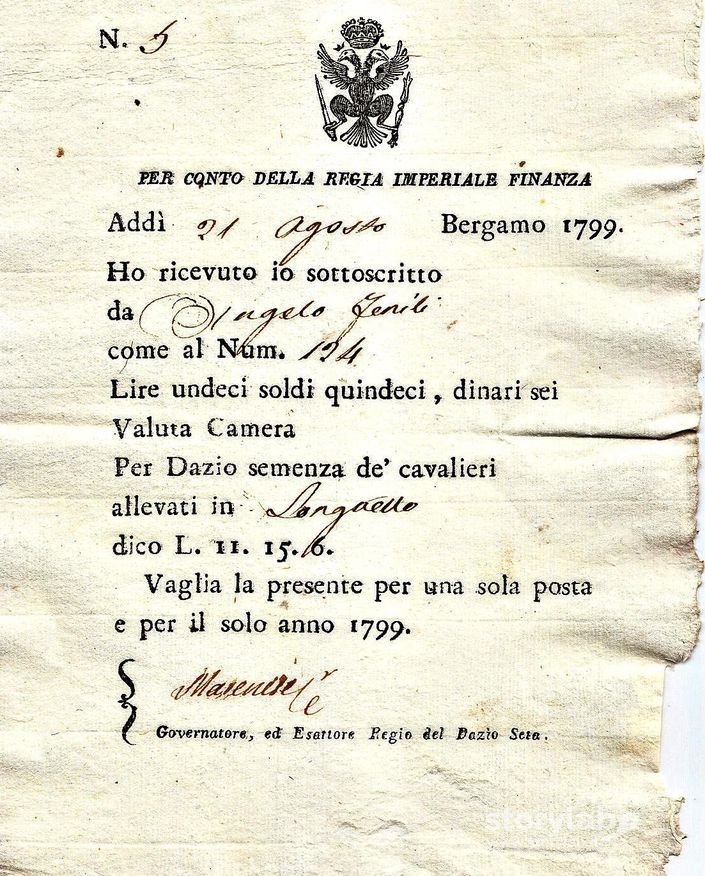 N. 5
PER CONTO DELLA REGIA IMPERIALE FINANZA
Addì 21 Agosto Bergamo 1799.
Ho ricevuto io sottoscritto
da Angelo Fenili
come al Num. 124
Lire undeci soldi quindeci, dinari sei
Valuta Camera
Per Dazio semenza de' cavalieri
allevati in
dico L. 11. 15. 6.
Vaglia la presente per una sola posta
e per il solo anno 1799.
Governatore, ed Esattore Regio del Dazio Seta.